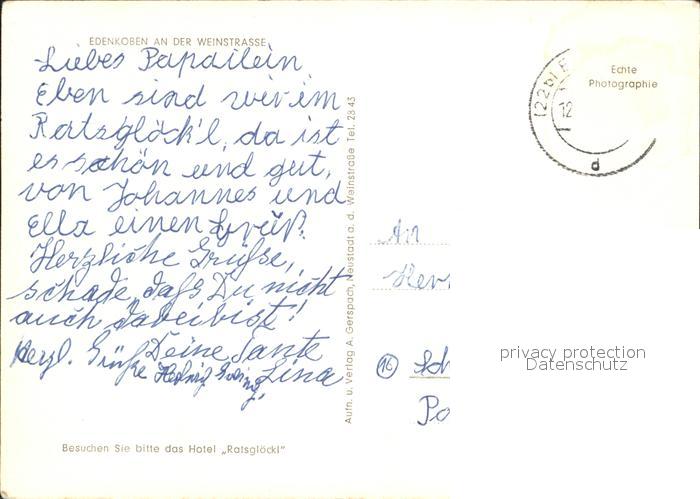 EDENKOBEN AN DER WEINSTRASSE
Liebes Papailein
Eben sind wir im
Ratsglöck'l, da ist
es schön und gut,
von Johannes und
Ella einen Gruß.
Herzliche Grüße,
schade, daß Du nicht
auch dabei bist!
Deine Tante
Lina
Herzl. Grüße
Besuchen Sie bitte das Hotel „Ratsglöckl"
Aufn. u. Verlag A. Gerspach, Neustadt a. d. Weinstraße Tel. 28 43
Echte
Photographie
(22b) E
12
d
An
Her
(16) Sch
Po
privacy protection
Datenschutz